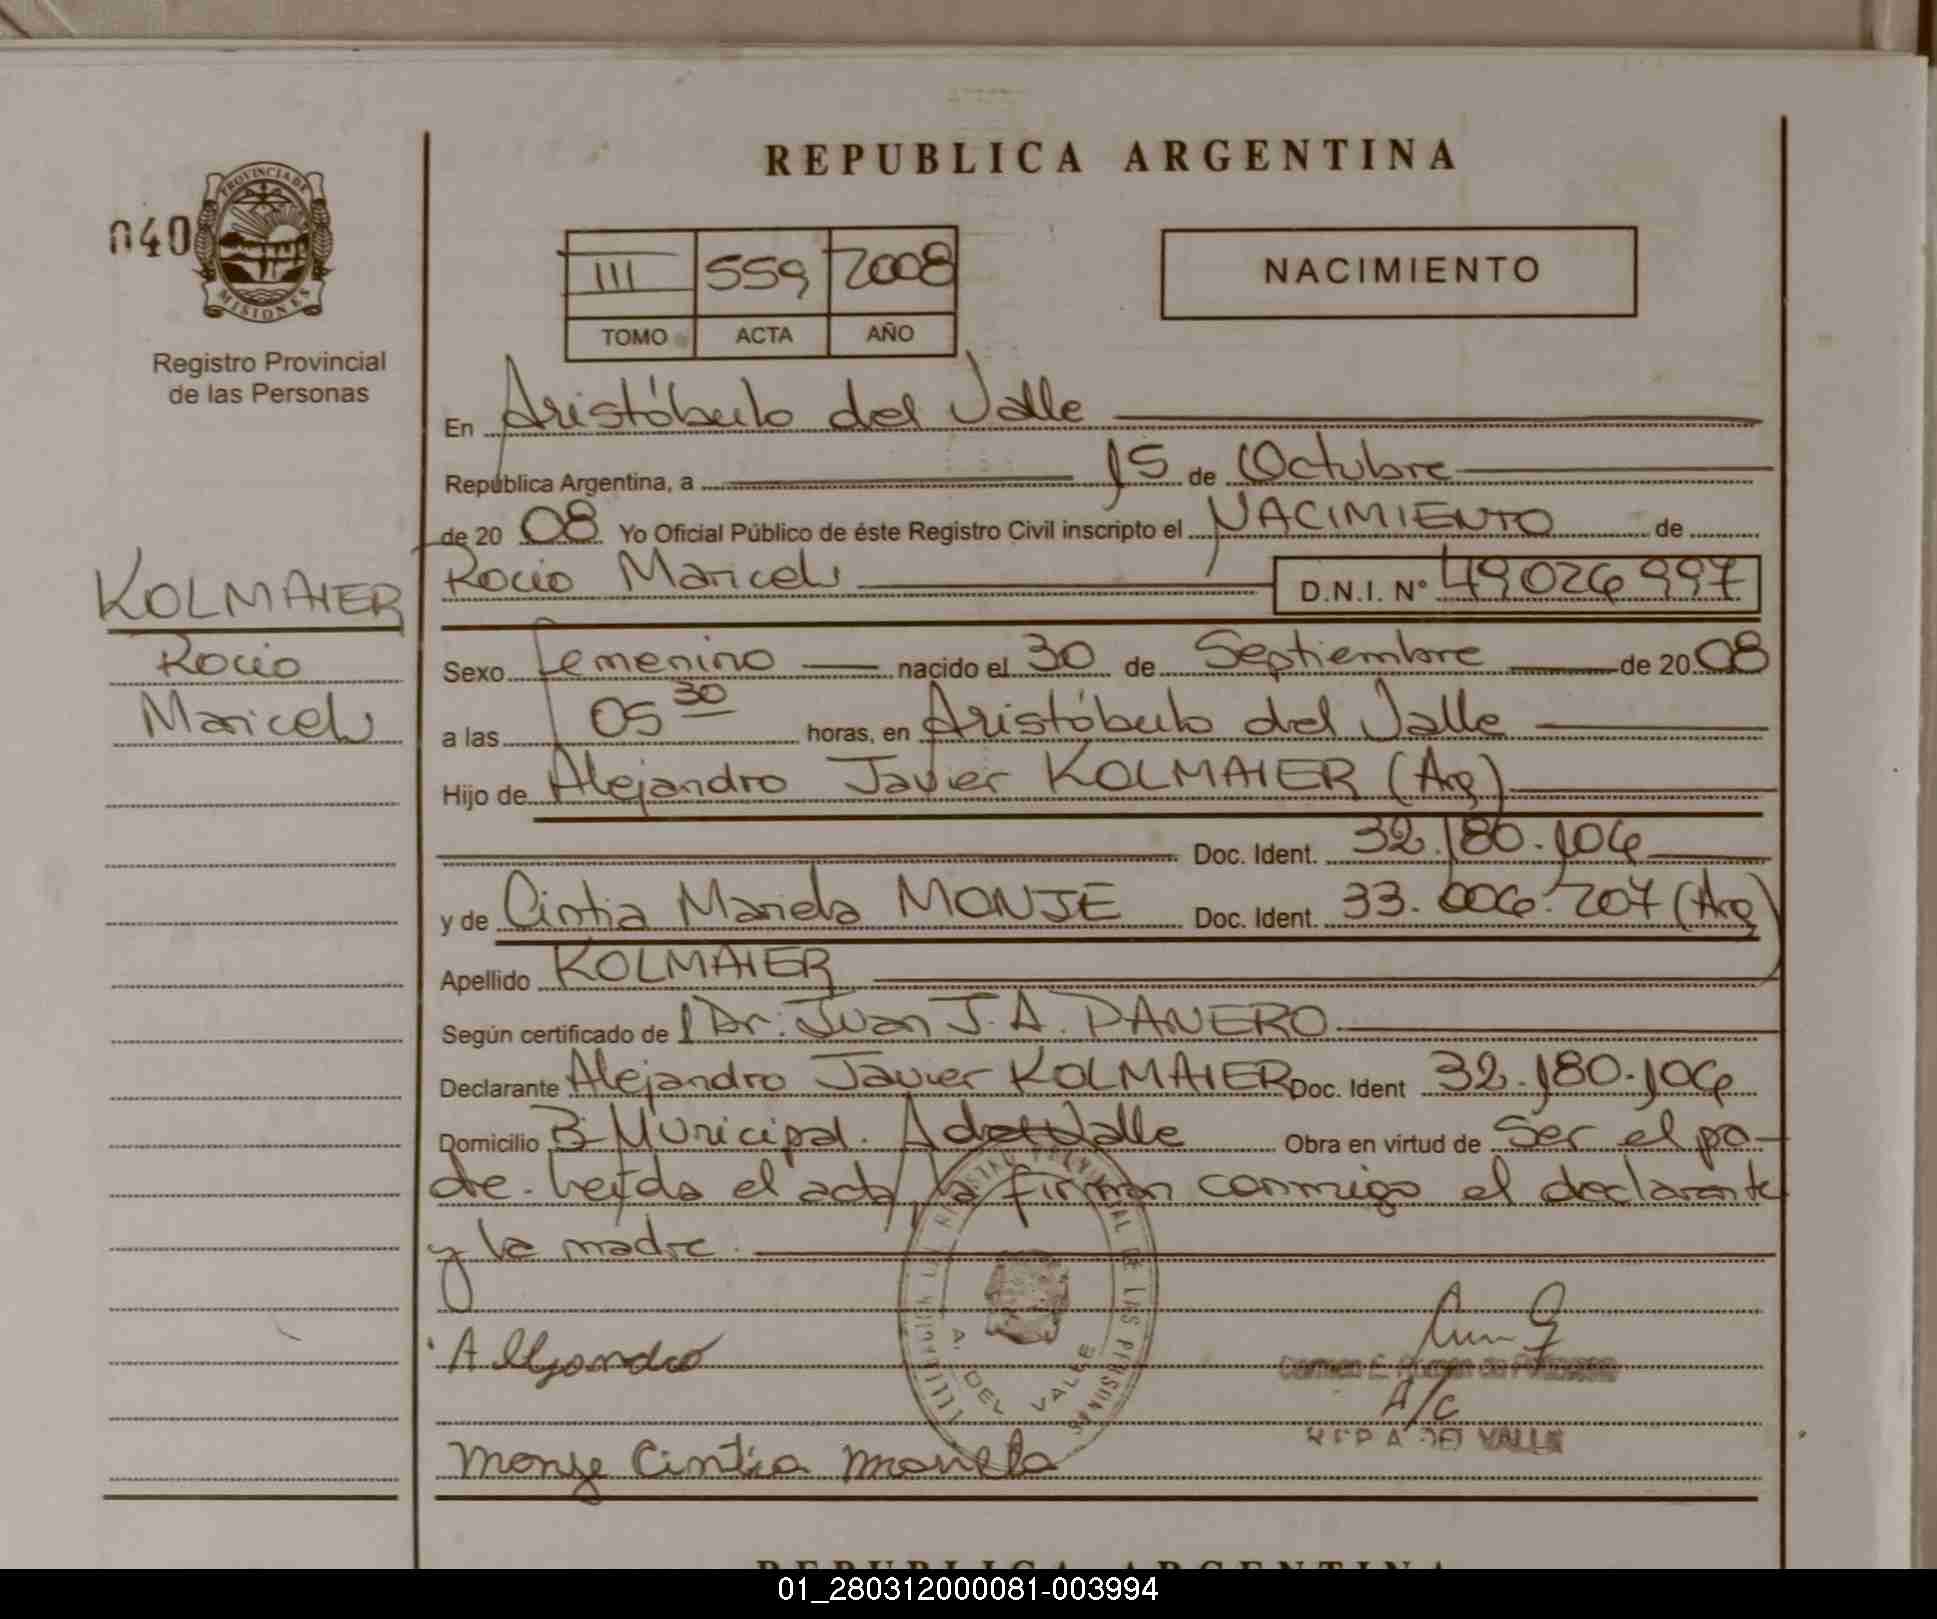 REPUBLICA ARGENTINA
040
PROVINCIA DE
MISIONES
Registro Provincial
de las Personas
III 559 2008
TOMO ACTA AÑO
NACIMIENTO
En Aristóbulo del Valle
República Argentina, a 15 de Octubre
de 20 08 Yo Oficial Público de éste Registro Civil inscripto el NACIMIENTO de
KOLMAIER
Rocio
Maricel
Rocio Maricel D.N.I. Nº 49026997
Sexo Femenino nacido el 30 de Septiembre de 20 08
a las 05 30 horas, en Aristóbulo del Valle
Hijo de Alejandro Javier KOLMAIER (Arg)
Doc. Ident. 32.180.106
y de Cintia Mariela MONJE Doc. Ident. 33.006.207 (Arg)
Apellido KOLMAIER
Según certificado de Dr. Juan J. A. PANERO
Declarante Alejandro Javier KOLMAIER Doc. Ident 32.180.106
Domicilio Bº Municipal. A del Valle Obra en virtud de ser el pa-
dre. Leída el acta, la firman conmigo el declarante
y la madre.
Alejandro
A/C
A. DEL VALLE
DEL VALLE
Monje Cintia Mariela
REPUBLICA ARGENTINA
01_280312000081-003994